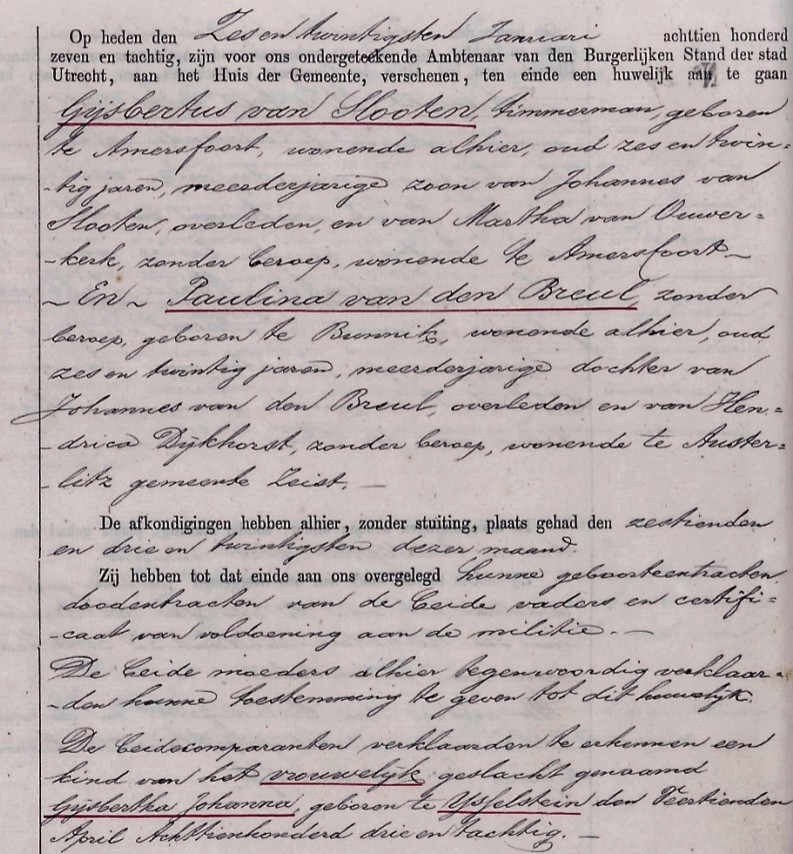 Op heden den Zes en twintigsten Januari achttien honderd
zeven en tachtig, zijn voor ons ondergeteekende Ambtenaar van den Burgerlijken Stand der stad
Utrecht, aan het Huis der Gemeente, verschenen, ten einde een huwelijk aan te gaan
Gijsbertus van Slooten, timmerman, geboren
te Amersfoort, wonende alhier, oud zes en twin=
-tig jaren, meerderjarige zoon van Johannes van
Slooten, overleden, en van Martha van Ouwer=
-kerk, zonder beroep, wonende te Amersfoort ~
~ En ~ Paulina van den Breul, zonder
beroep, geboren te Bunnik, wonende alhier, oud
zes en twintig jaren, meerderjarige dochter van
Johannes van den Breul, overleden en van Hen=
-drica Dijkhorst, zonder beroep, wonende te Auster=
-litz gemeente Zeist. —
De afkondigingen hebben alhier, zonder stuiting, plaats gehad den zestienden
en drie en twintigsten dezer maand.
Zij hebben tot dat einde aan ons overgelegd hunne geboorteextracten
doodextracten van de beide vaders en certifi=
-caat van voldoening aan de militie. —
De beide moeders alhier tegenwoordig verklaar=
-den hunne toestemming te geven tot dit huwelijk.
De beide comparanten verklaarden te erkennen een
kind van het vrouwelijk geslacht genaamd
Gijsbertha Johanna, geboren te IJsselstein den Veertienden
April Achttienhonderd drie en tachtig. —